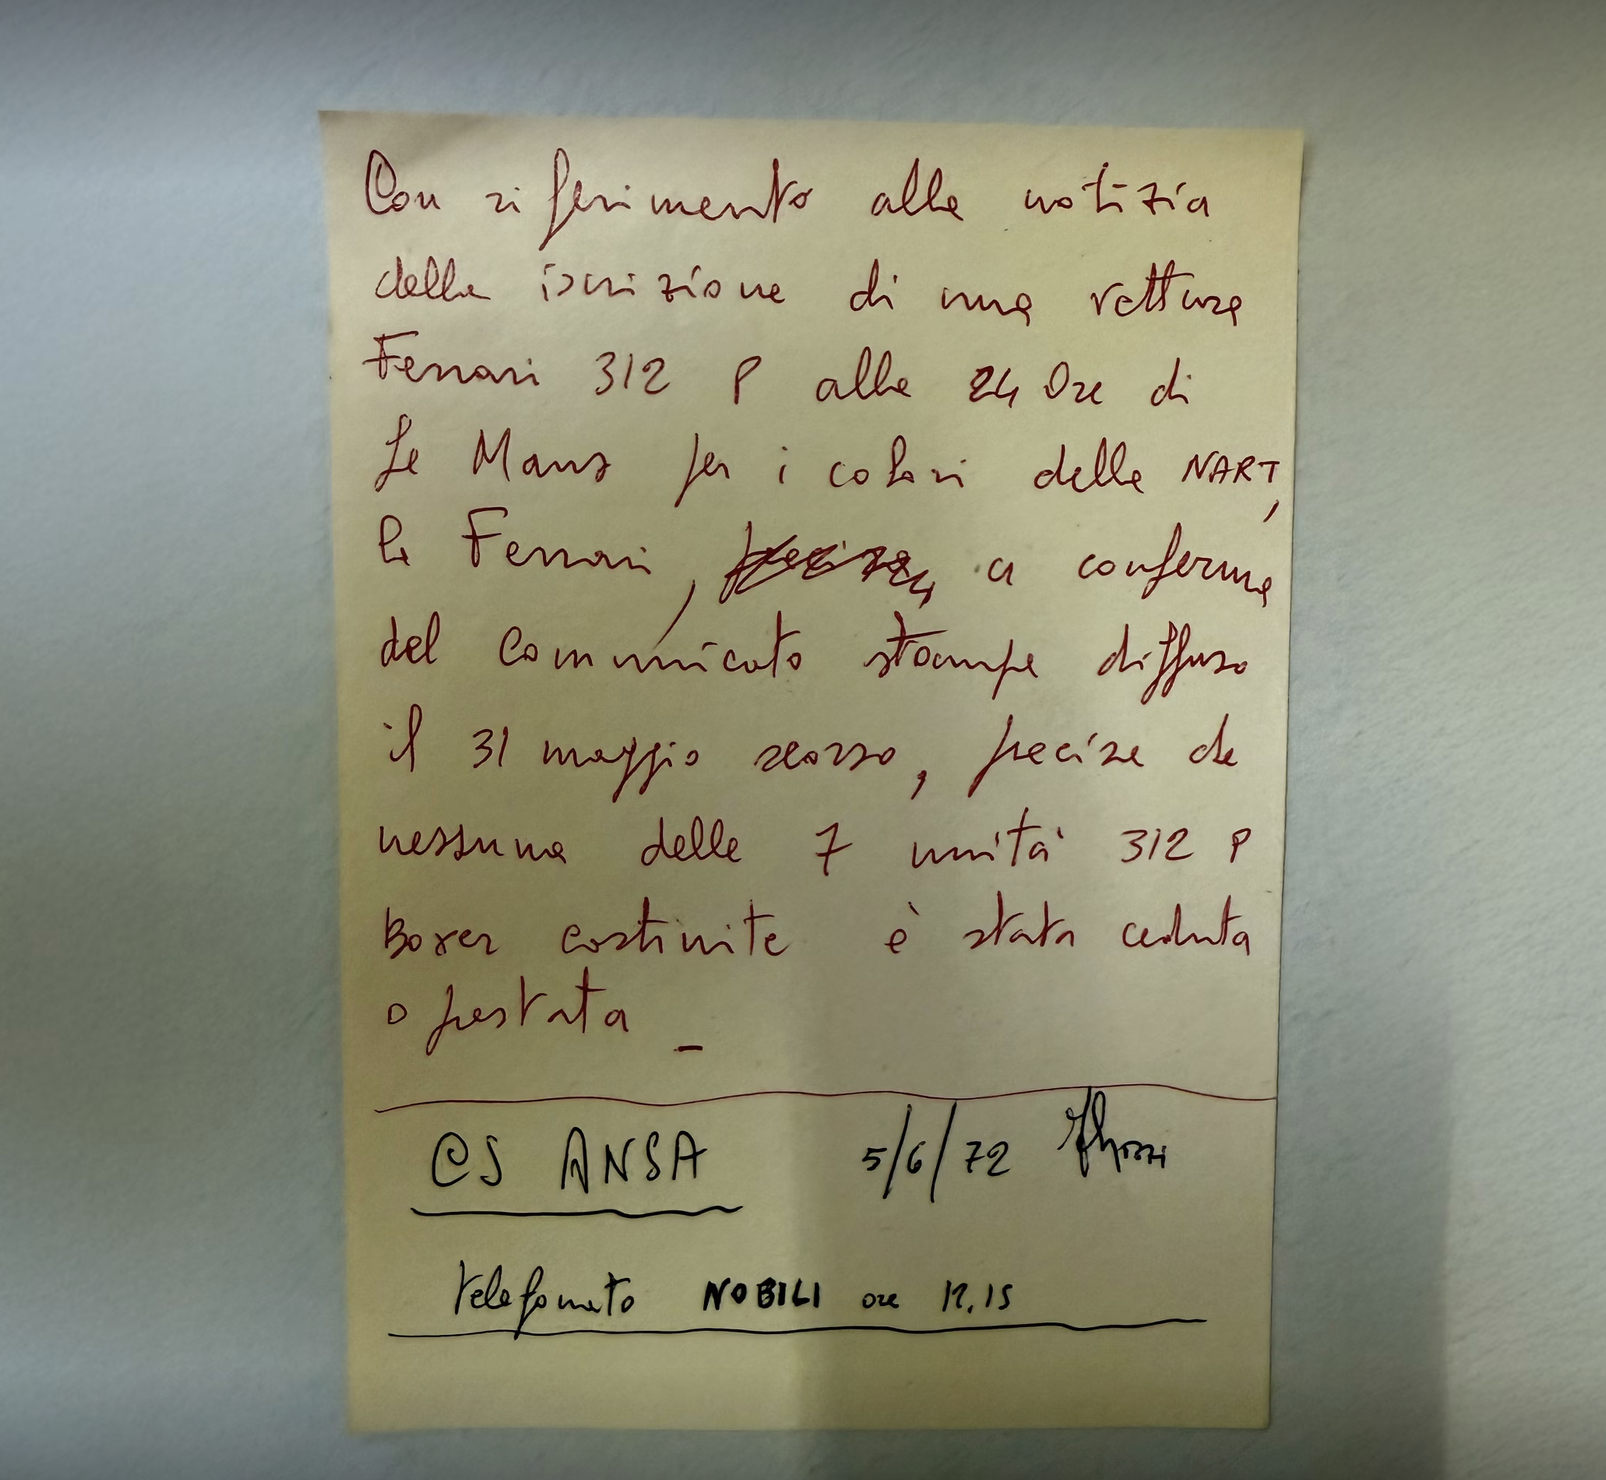 Con riferimento alla notizia
della iscrizione di una vettura
Ferrari 312 P alla 24 Ore di
Le Mans per i colori della NART,
la Ferrari, a conferma
del comunicato stampa diffuso
il 31 maggio scorso, precisa che
nessuna delle 7 unità 312 P
Boxer costruite è stata ceduta
o prestata _
CS ANSA 5/6/72
telefonato NOBILI ore 12,15